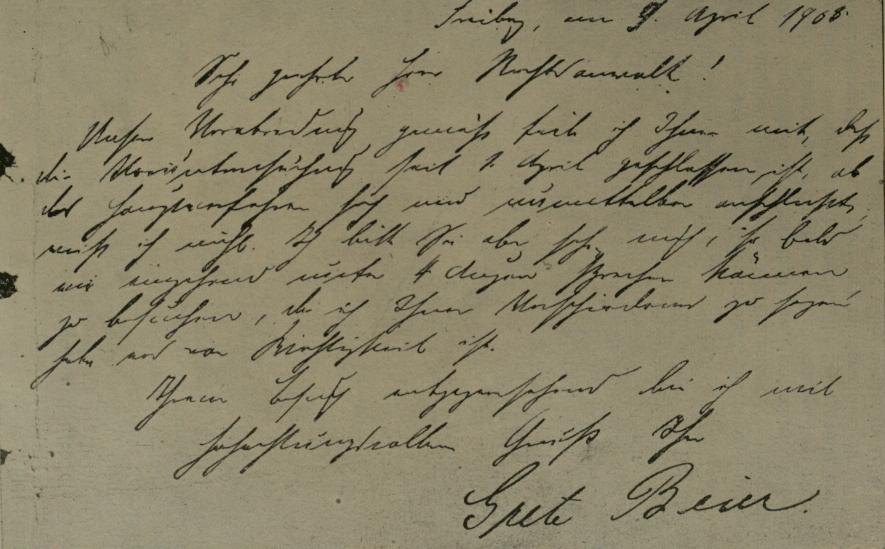 Freiberg, am 9. April 1908.
Sehr geehrter Herr Rechtsanwalt!
Unserer Verabredung gemäß teile ich Ihnen mit, daß
die Voruntersuchung seit 1. April geschlossen ist, ob
das Hauptverfahren sich nun unmittelbar anschließt,
weiß ich nicht. Ich bitte Sie aber sehr, mich, so bald
wir eingehend unter 4 Augen sprechen können
zu besuchen, da ich Ihnen Verschiedenes zu sagen
habe was von Wichtigkeit ist.
Ihrem Besuch entgegensehend bin ich mit
hochachtungsvollem Gruß Ihre
Grete Beier.